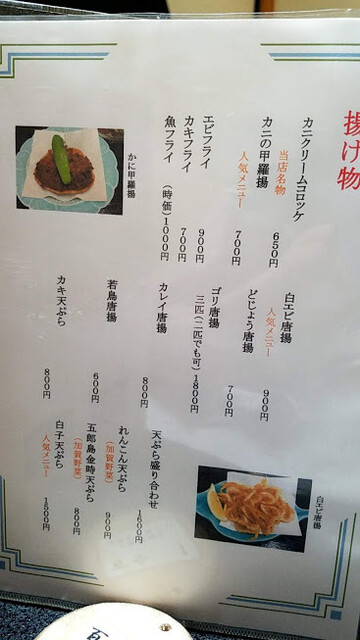 揚げ物
カニクリームコロッケ
当店名物
650円
カニの甲羅揚
人気メニュー
700円
エビフライ
900円
カキフライ
700円
魚フライ
(時価)1000円
かに甲羅揚
白エビ唐揚
人気メニュー
900円
どじょう唐揚
700円
ゴリ唐揚
三匹(二匹でも可)1800円
カレイ唐揚
800円
若鳥唐揚
600円
カキ天ぷら
800円
天ぷら盛り合わせ
1600円
れんこん天ぷら
(加賀野菜)
900円
五郎島金時天ぷら
(加賀野菜)
800円
白子天ぷら
人気メニュー
1500円
白エビ唐揚